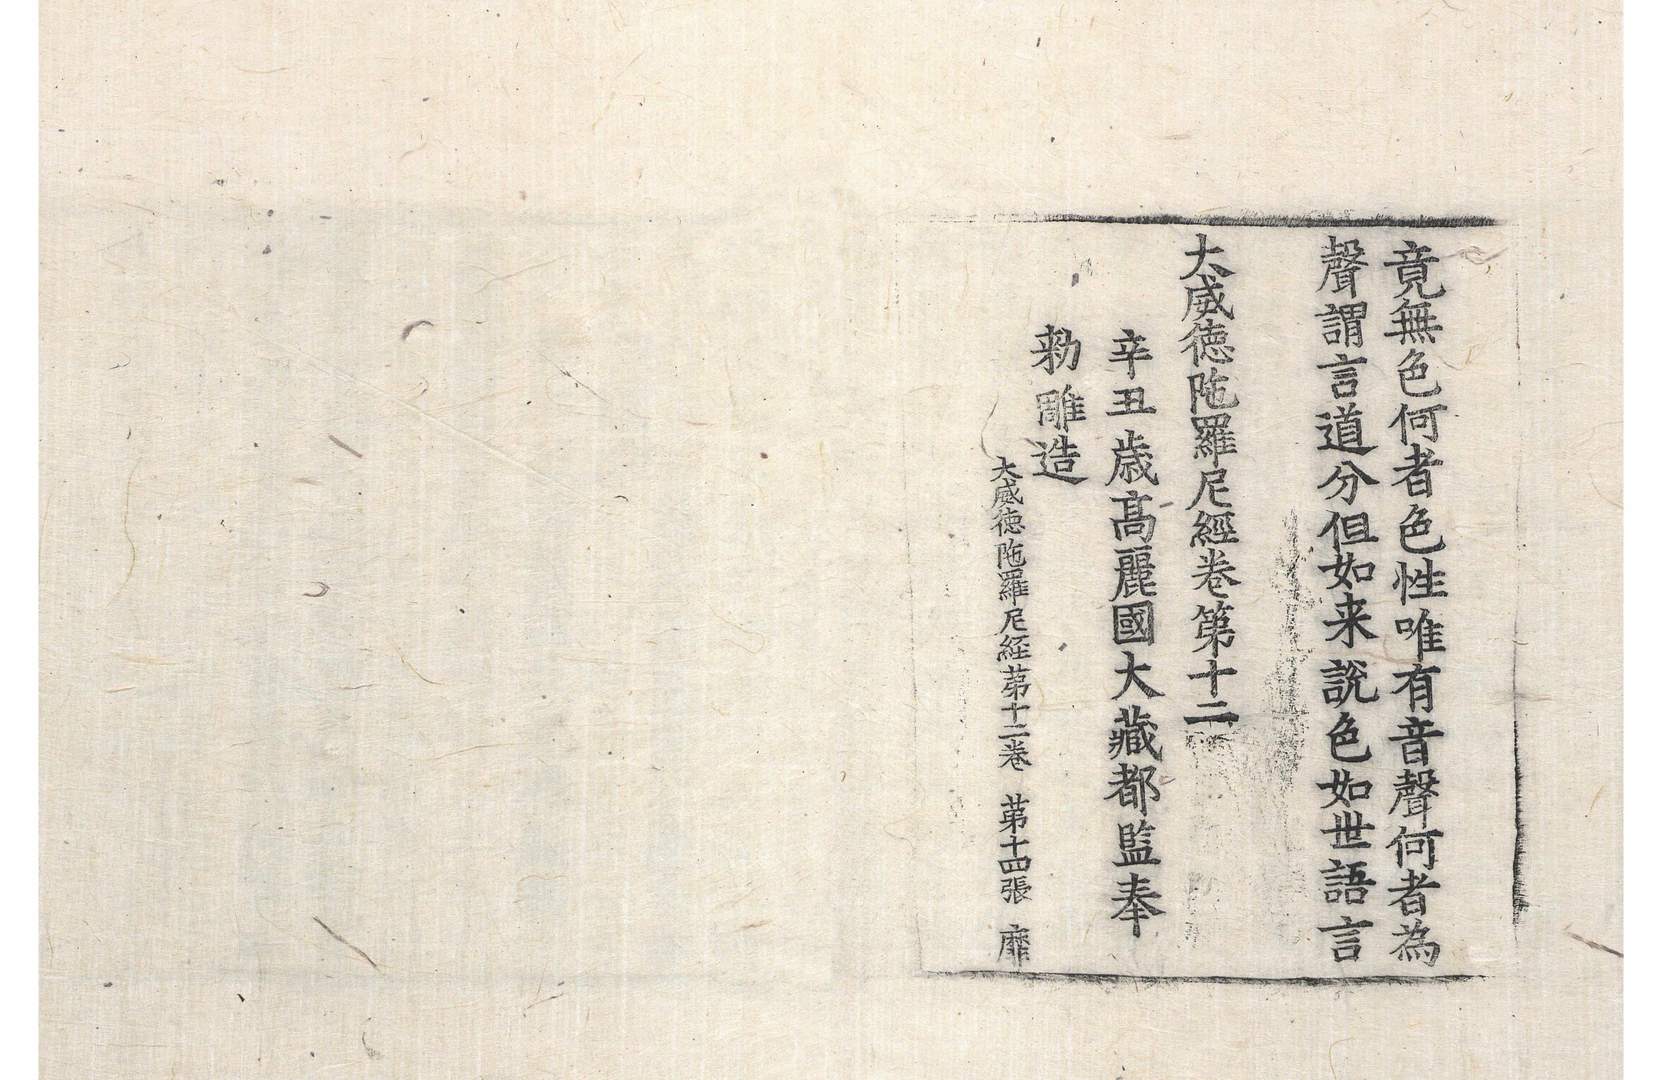 竟無色何者色性唯有音聲何者為
聲謂言道分但如来說色如世語言
大威徳陁羅尼經卷第十二
辛丑歳高麗國大藏都監奉
勑雕造
大威徳陁羅尼経苐十二卷 苐十四張 靡